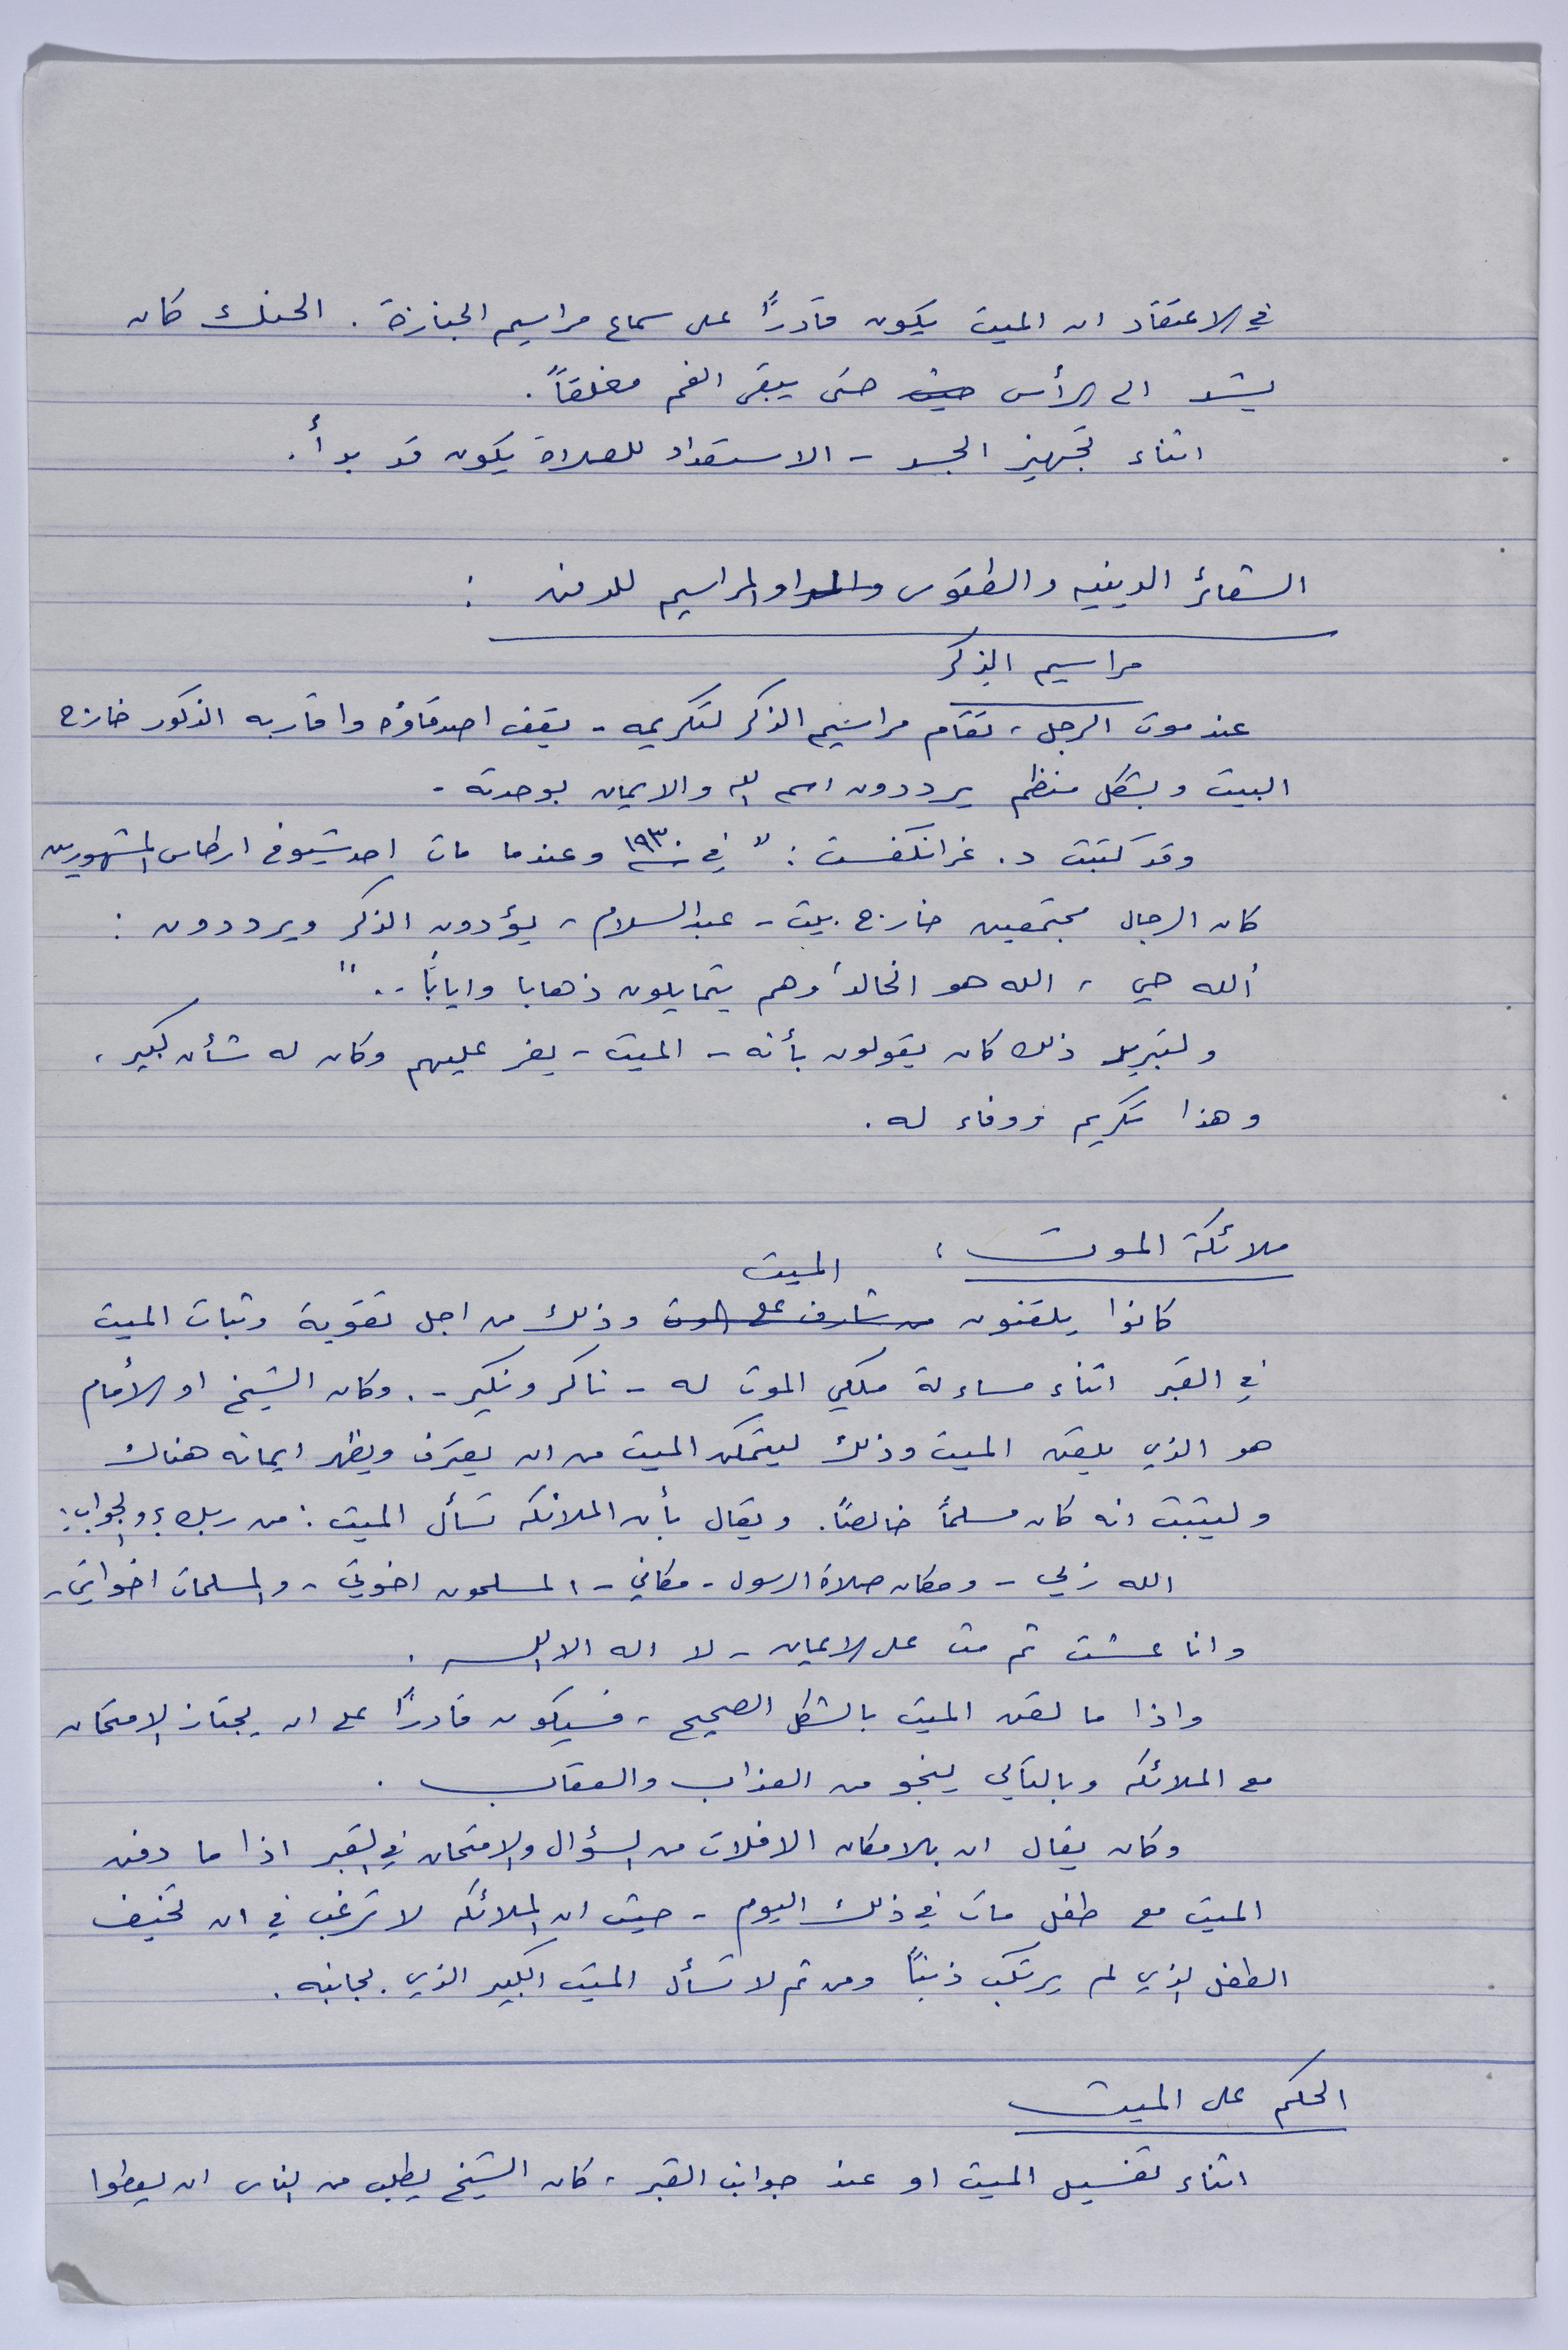 في الاعتقاد ان الميت يكون قادراً على سماع مراسيم الجنازة . الحنك كان
يشد الى الرأس حيث حتى يبقى الفم مغلقاً .
اثناء تجهيز الجسد - الاستعداد للصلاة يكون قد بدأ .
الشعائر الدينيه والطقوس والمراسيم للدفن :
مراسيم الذكر
عند موت الرجل ، تقام مراسيم الذكر لتكريمه - يقف اصدقاؤه واقاربه الذكور خارج
البيت وبشكل منظم يرددون اسم الله والايمان بوحدته -
وقد كتبت د . غرانكفست : " في ١٩٣٠ وعندما مات احد شيوخ ارطاس المشهورين
كان الرجال مجتمعين خارج بيت - عبد السلام ، يؤدون الذكر ويرددون :
الله حي ، الله هو الخالد وهم يتمايلون ذهابا واياباً .. "
ولتبرير ذلك كان يقولون بأنه - الميت - يعز عليهم وكان له شأن كبير ،
وهذا تكريم ووفاء له .
ملائكة الموت :
الميت
كانوا يلقنون من شارف على الموت وذلك من اجل تقوية وثبات الميت
في القبر اثناء مساءلة ملكي الموت له - ناكر ونكير - . وكان الشيخ او الأمام
هو الذي يلقن الميت وذلك ليتمكن الميت من ان يعترف ويظهر ايمانه هناك
وليثبت انه كان مسلماً خالصاً . ويقال بأن الملائكه تسأل الميت : من ربك ؟ والجواب :
الله ربي - ومكان صلاة الرسول - مكاني - المسلمون اخوتي - والمسلمات اخواتي -
وانا عشت ثم مت على الايمان - لا اله الا الله .
واذا ما لقن الميت بالشكل الصحيح ، فسيكون قادراً على ان يجتاز الامتحان
مع الملائكه وبالتالي ينجو من العذاب والعقاب .
وكان يقال ان بالامكان الافلات من السؤال والامتحان في القبر اذا ما دفن
الميت مع طفل مات في ذلك اليوم - حيث ان الملائكه لا ترغب في ان تخيف
الطفل الذي لم يرتكب ذنباً ومن ثم لا تسأل الميت الكبير الذي بجانبه .
الحكم على الميت
اثناء تغسيل الميت او عند جوانب القبر ، كان الشيخ يطلب من الناس ان يعطوا